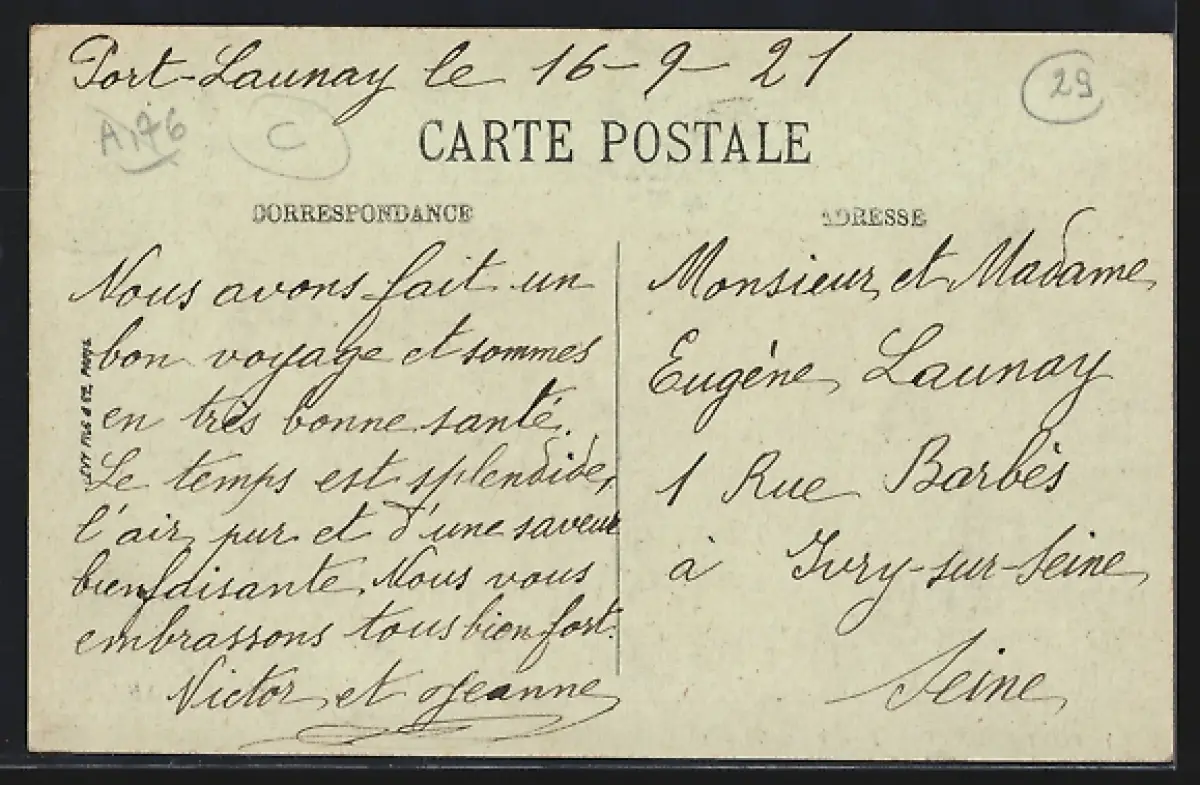 Port-Launay le 16-9-21
29
A176
C
CARTE POSTALE
CORRESPONDANCE
ADRESSE
Nous avons fait un
bon voyage et sommes
en très bonne santé.
Le temps est splendide,
l'air pur et d'une saveur
bienfaisante. Nous vous
embrassons tous bien fort.
Victor et Jeanne
LEVY FILS & CIE PARIS
Monsieur et Madame
Eugène Launay
1 Rue Barbès
à Ivry-sur-Seine
Seine